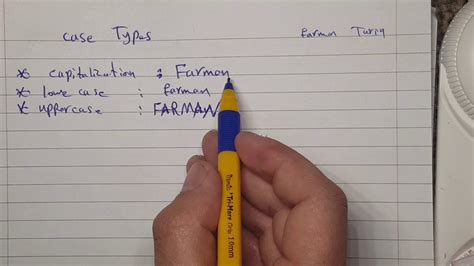 case Types
farman Tariq
* capitalization : Farman
* lowe case : farman
* uppercase : FARMAN
Tri-Mate
1.0mm